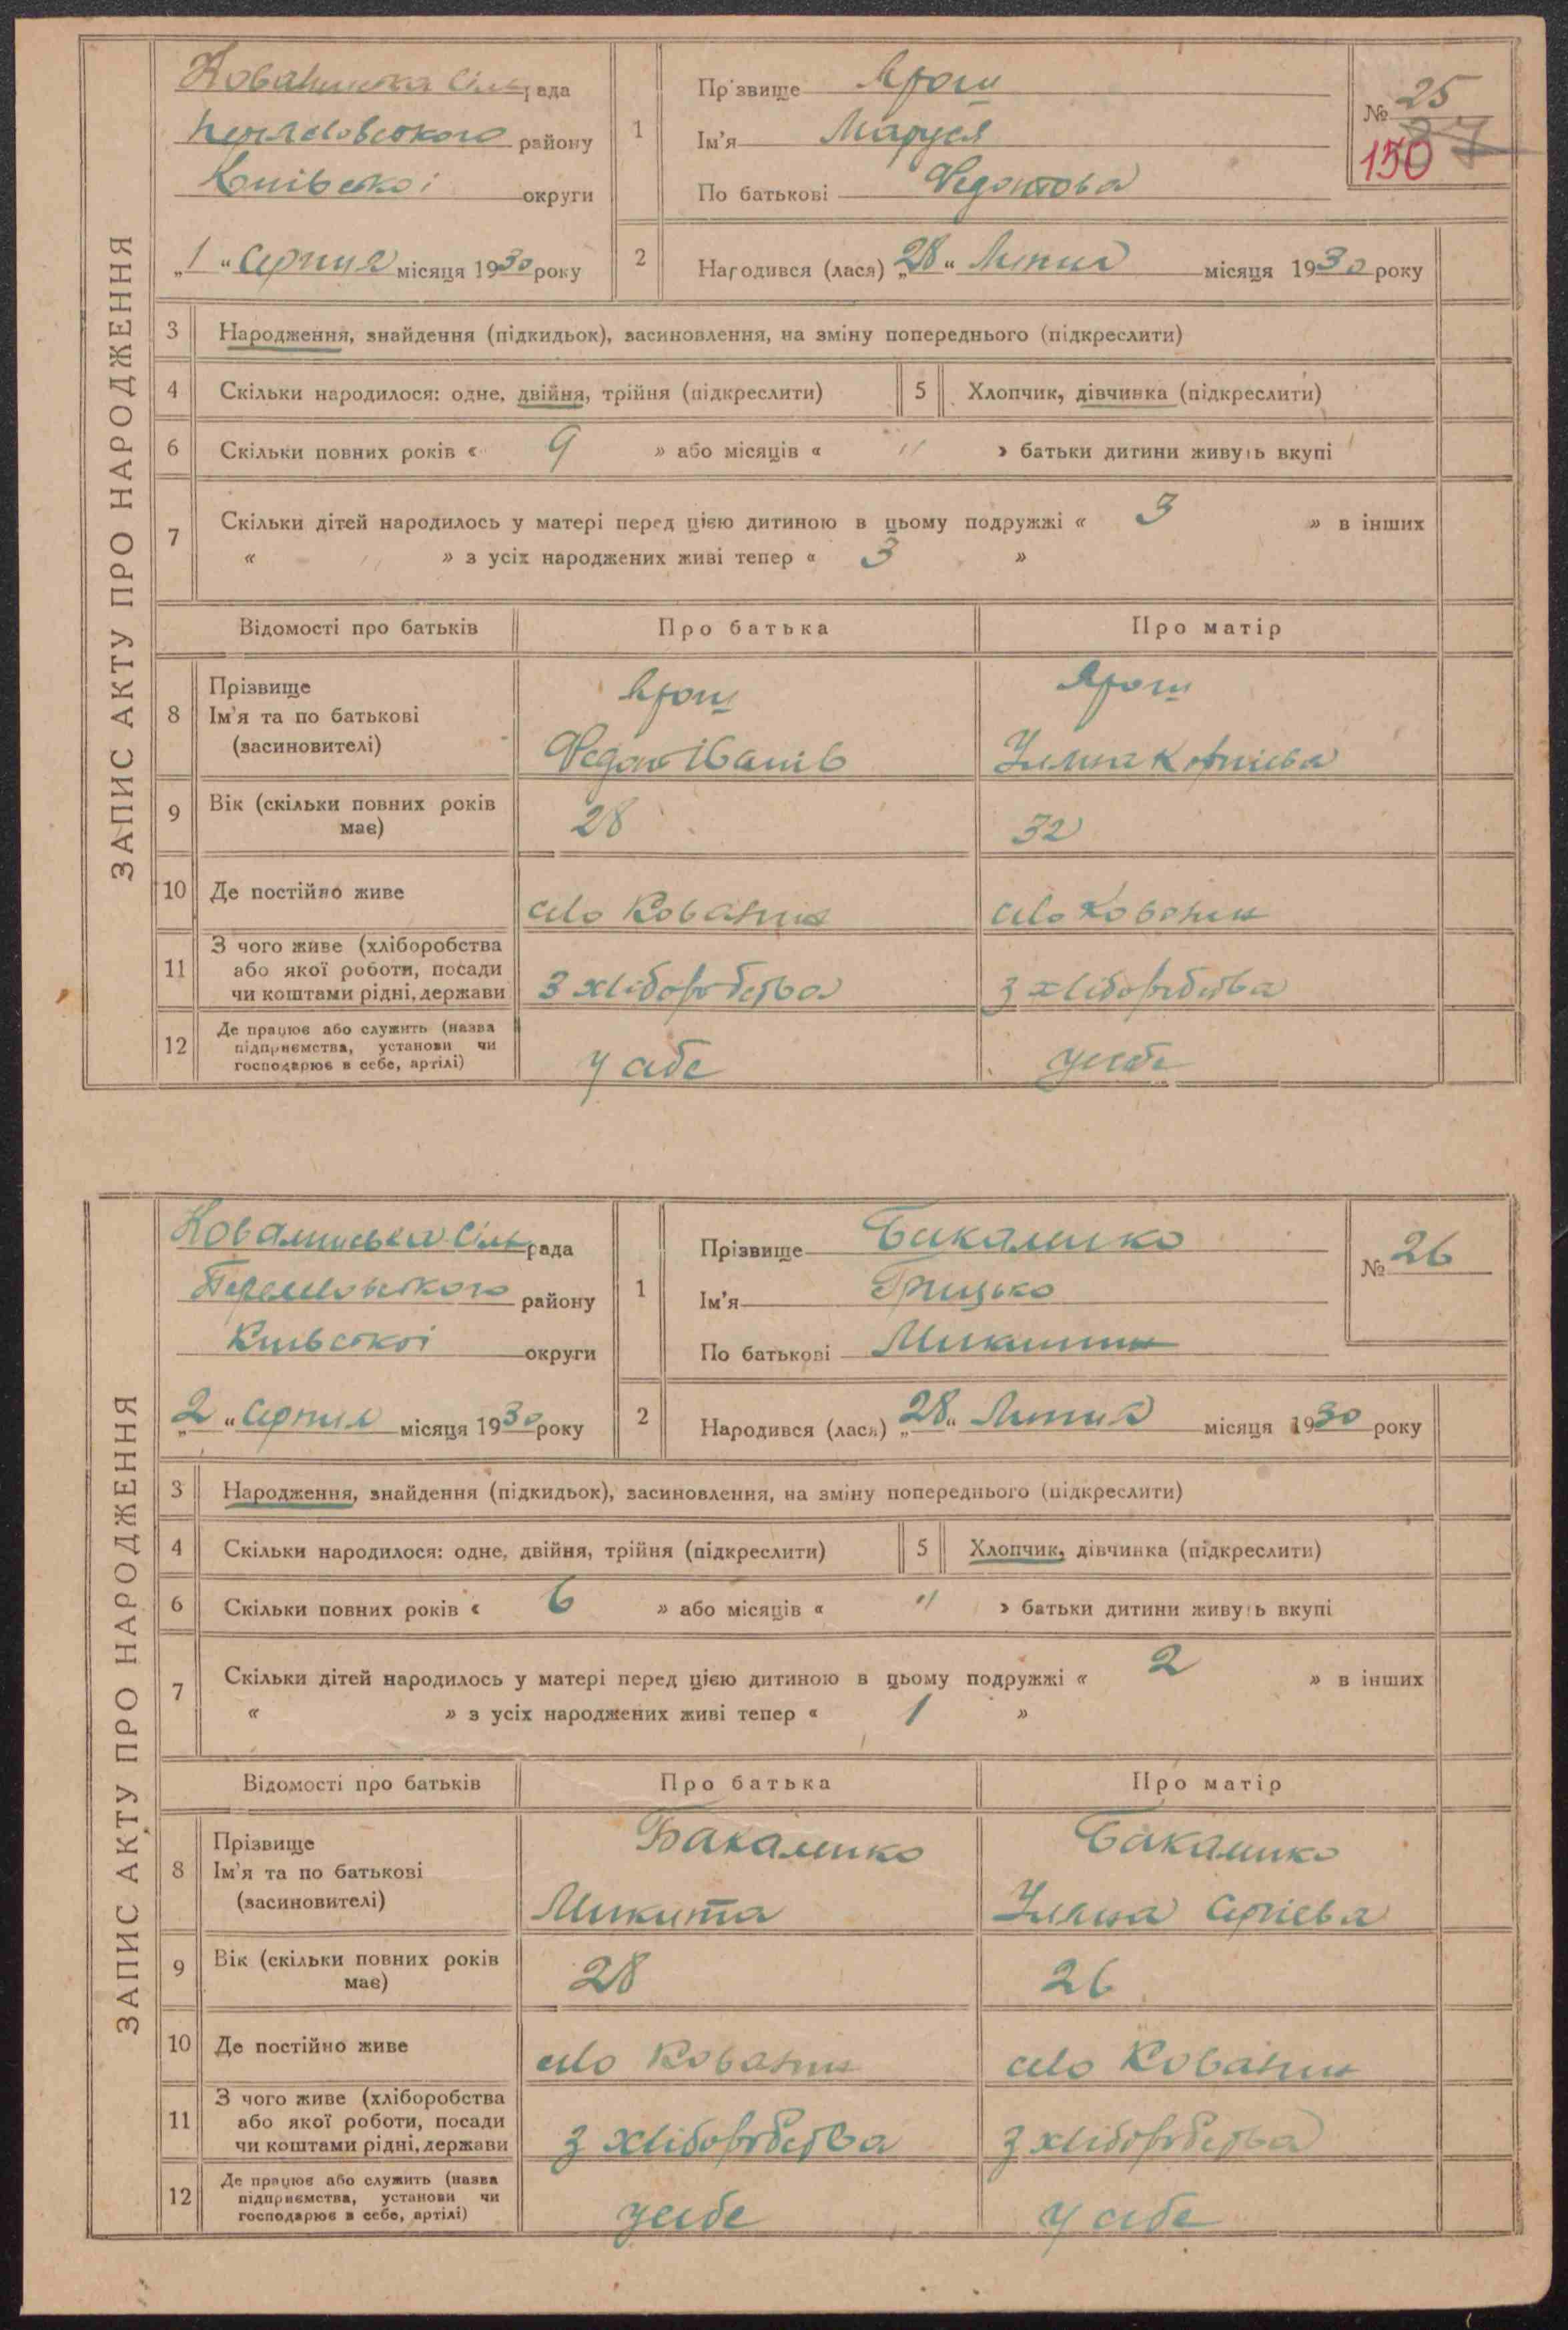 ЗАПИС АКТУ ПРО НАРОДЖЕННЯ
Кованська Сільрада
району
Київської округи
„1“ Серпня місяця 1930 року
1
Прізвище Ярош
Ім'я Маруся
По батькові Федотова
№ 25
37
150
2
Народився (лася) „28“ Липня місяця 1930 року
3 Народження, знайдення (підкидьок), засиновлення, на зміну попереднього (підкреслити)
4 Скільки народилося: одне, двійня, трійня (підкреслити) 5 Хлопчик, дівчинка (підкреслити)
6 Скільки повних років « 9 » або місяців « " » батьки дитини живуть вкупі
7 Скільки дітей народилось у матері перед цією дитиною в цьому подружжі « 3 » в інших
« " » з усіх народжених живі тепер « 3 »
Відомості про батьків Про батька Про матір
8 Прізвище Ім'я та по батькові (засиновителі)
Ярош Ярош
Федот Іванів Уляна Корніева
9 Вік (скільки повних років має) 28 32
10 Де постійно живе село Кованин село Кованин
11 З чого живе (хліборобства або якої роботи, посади чи коштами рідні, держави З хліборобства З хліборобства
12 Де працює або служить (назва підприємства, установи чи господарює в себе, артілі) у себе у себе
ЗАПИС АКТУ ПРО НАРОДЖЕННЯ
Сільрада
району
Київської округи
„2“ Серпня місяця 1930 року
1
Прізвище Бакаленко
Ім'я Грицько
По батькові
№ 26
2
Народився (лася) „28“ Липня місяця 1930 року
3 Народження, знайдення (підкидьок), засиновлення, на зміну попереднього (підкреслити)
4 Скільки народилося: одне, двійня, трійня (підкреслити) 5 Хлопчик, дівчинка (підкреслити)
6 Скільки повних років « 6 » або місяців « " » батьки дитини живуть вкупі
7 Скільки дітей народилось у матері перед цією дитиною в цьому подружжі « 2 » в інших
« » з усіх народжених живі тепер « 1 »
Відомості про батьків Про батька Про матір
8 Прізвище Ім'я та по батькові (засиновителі)
Бакаленко Бакаленко
Микита Уляна Сергієва
9 Вік (скільки повних років має) 28 26
10 Де постійно живе село Кованин село Кованин
11 З чого живе (хліборобства або якої роботи, посади чи коштами рідні, держави З хліборобства З хліборобства
12 Де працює або служить (назва підприємства, установи чи господарює в себе, артілі) у себе у себе